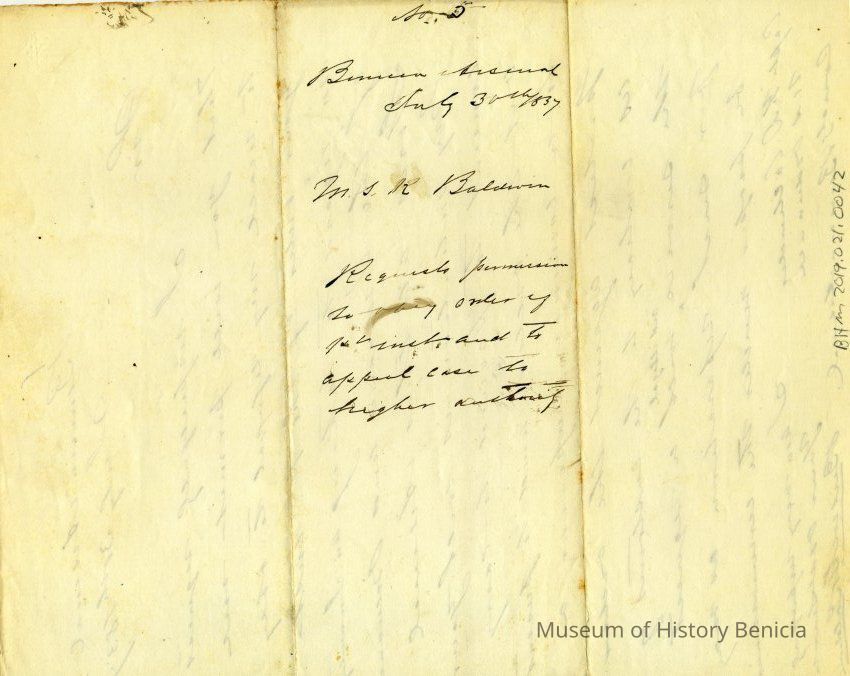 No. 5
Benicia Arsenal
July 30th /857
M. S. K Baldwin
Requests permission
to obey order of
1st inst. and to
appeal case to
higher authority
BHM 2019.021.0042
Museum of History Benicia